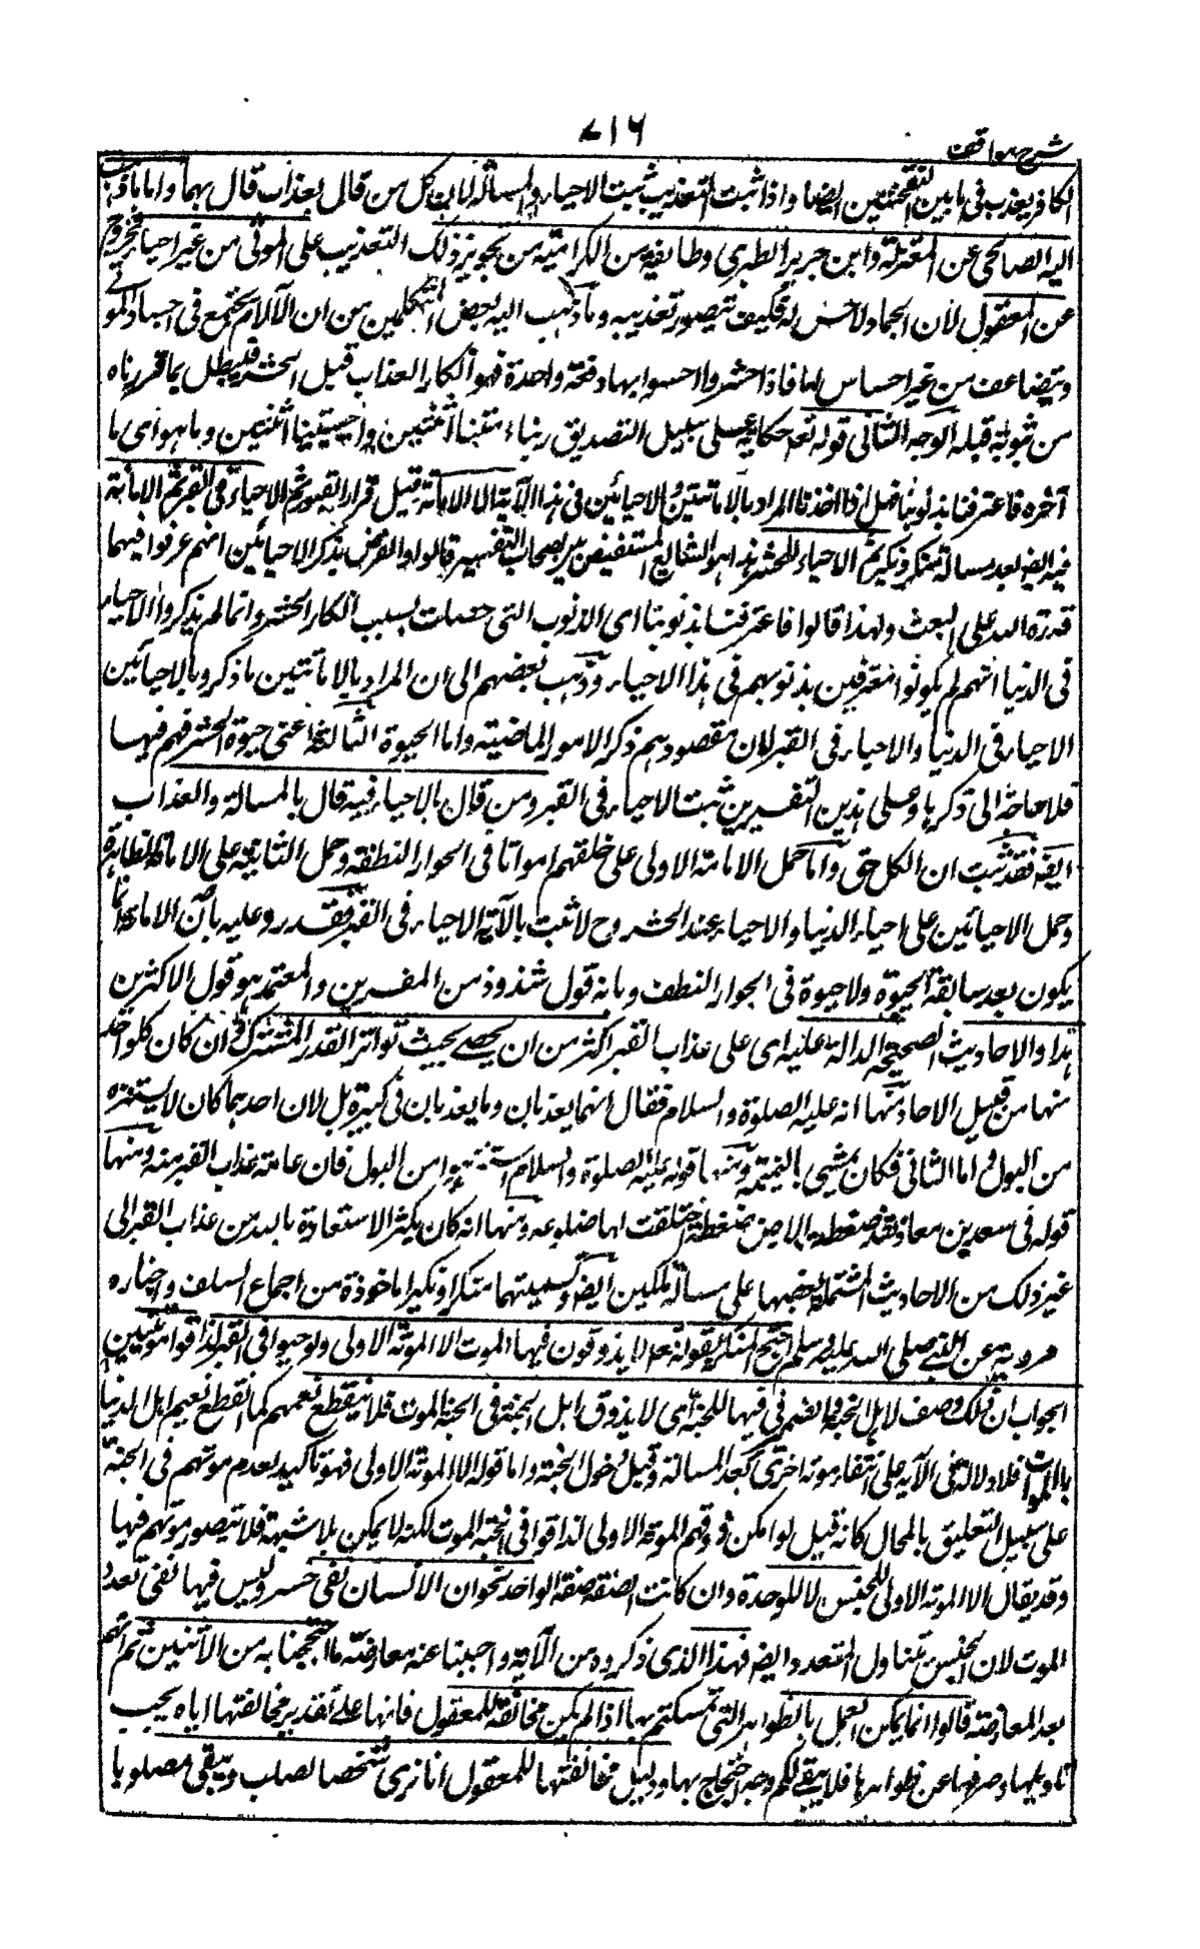 شرح مواقف
۷۱۶
الكافر يعذب فى ما بين النفختين ايضا واذا ثبت التعذيب ثبت الاحياء والمسألة لان كل من قال بعذاب قال بهما واما ما ذهب
اليه الصالحى عن المعتزلة وابن جرير الطبرى وطايفة من الكرامية من تجويز ذلك التعذيب على الموتى من غير احياء فخروج
عن المعقول لان الجماد لا حس له فكيف تيصور تعذيبه وما ذهب اليه بعض المتكلمين من ان الآلام تجتمع فى اجساد الموتى
ويتضاعف من غير احساس لها فاذا حشروا احسوا بها دفعة واحدة فهو انكار العذاب قبل الحشر فيبطل بما قررناه
من ثبوته قبله الوجه الثانى قوله تعه حكاية على سبيل التصديق ربناء امتنا اثنتين واحييتينا اثنتين وما هو اى ما
آخره فاعترفنا بذنوبنا المراد بالاماتتين والاحيائين فى هذه الآية الا الاماتة قبل مزار القبور ثم الاحياء فى القبر ثم الاماتة
فيه ايض بعد مسالة منكر ونكير ثم الاحياء للحشر هذا هو الشايع المستفيض بين اصحاب التفسير قالوا والغرض بذكر الاحيائين انهم عرفوا فيهما
قدرة الله على البعث ولهذا قالوا فاعترفنا بذنوبنا اى الذنوب التى حصلت بسبب انكار الحشر وانما لم يذكروا الاحياء
فى الدنيا انهم لم يكونوا معترفين بذنوبهم فى هذا الاحياء وذهب بعضهم الى ان المراد بالاماتتين ما ذكر وبالاحيائين
الاحياء فى الدنيا والاحياء فى القبر لان مقصودهم ذكر الامور الماضية واما الحيوة الثالثة اعنى حيوة الحشر فهم فيها
فلا حاجة الى ذكرها وعلى هذين التفسيرين ثبت الاحياء فى القبر ومن قال بالاحياء فيه قال بالمسالة والعذاب
ايضه فقد ثبت ان الكل حق واما حمل الاماتة الاولى على خلقهم امواتا فى اطوار النطفة وحمل الثانية على الاماتة الظاهرة
وحمل الاحيائين على احياء الدنيا والاحياء عند الحشر وح لا ثبت بالآية الاحياء فى القبر فقد رد عليه بان الاماتة انما
يكون بعد سابقة الحيوة ولا حيوة فى اطوار النطف وبانه قول شذوذ من المفسرين والمعتمد هو قول الاكثرين
هذا والاحاديث الصحيحة الدالة عليه اى على عذاب القبر اكثر من ان يحصى بحيث تواتر القدر المشترك وان كان كل واحد
منها من قبيل الاحاد منها انه عليه الصلوة والسلام فقال انهما يعذبان وما يعذبان فى كبيرة بل لان احدهما كان لا يستنزه
من البول واما الثانى فكان يمشى بالنميمة ومنها قوله عليه الصلوة والسلام استنزهوا من البول فان عامة عذاب القبر منه ومنها
قوله فى سعد بن معاذ لقد ضغطته الارض ضغطة اختلفت لها ضلوعه ومنها انه كان يكثر الاستعاذة بالله من عذاب القبر الى
غير ذلك من الاحاديث المشتملة بعضها على مسألة الملكين ايضه وتسميتهما منكرا ونكيرا ماخوذة من اجماع السلف واخباره
مروية عن النبى صلى الله عليه وسلم احتج المنكر بقوله تعه لا يذوقون فيها الموت الا الموتة الاولى ولو حيوا فى القبر لذاقوا موتتين
الجواب ان ذلك وصف لاهل الجنة والضمير فى فيها للجنة اى لا يذوق اهل الجنة فى الجنة الموت فلا ينقطع نعيمهم كما انقطع نعيم اهل الدنيا
بالموت فلا دلالة فى الآيه على انتفاء موتة اخرى بعد المسالة وقبل دخول الجنة واما قوله الا الموتة الاولى فهو تاكيد لعدم موتهم فى الجنة
على سبيل التعليق بالمحال كانه قيل لو امكن ذوقهم الموتة الاولى لذاقوا فى الجنة الموت لكنه لا يمكن بلا شبهة فلا تيصور موتهم فيها
وقد يقال الا الموتة الاولى للجنس لا للوحدة وان كانت الصيغة صيغة الواحد نحو ان الانسان لفى خسر وليس فيها نفى تعدد
الموت لان الجنس يتناول المتعدد ايضه فهذا الذى ذكروه من الآية واجبنا عنه معارضة ما احتججنا به من الآيتين ثم انهم
بعد المعارضة قالوا انما يمكن العمل بالظواهر التى تمسكتم بها اذا لم يكن مخالفة للمعقول فانها على تقدير مخالفتها اياه يجب
تاويلها وصرفها عن ظواهرها فلا يبقى لكم وجه احتجاج بها ودليل مخالفتها للمعقول انا نرى شخصا لصلب ويبقى مصلوبا